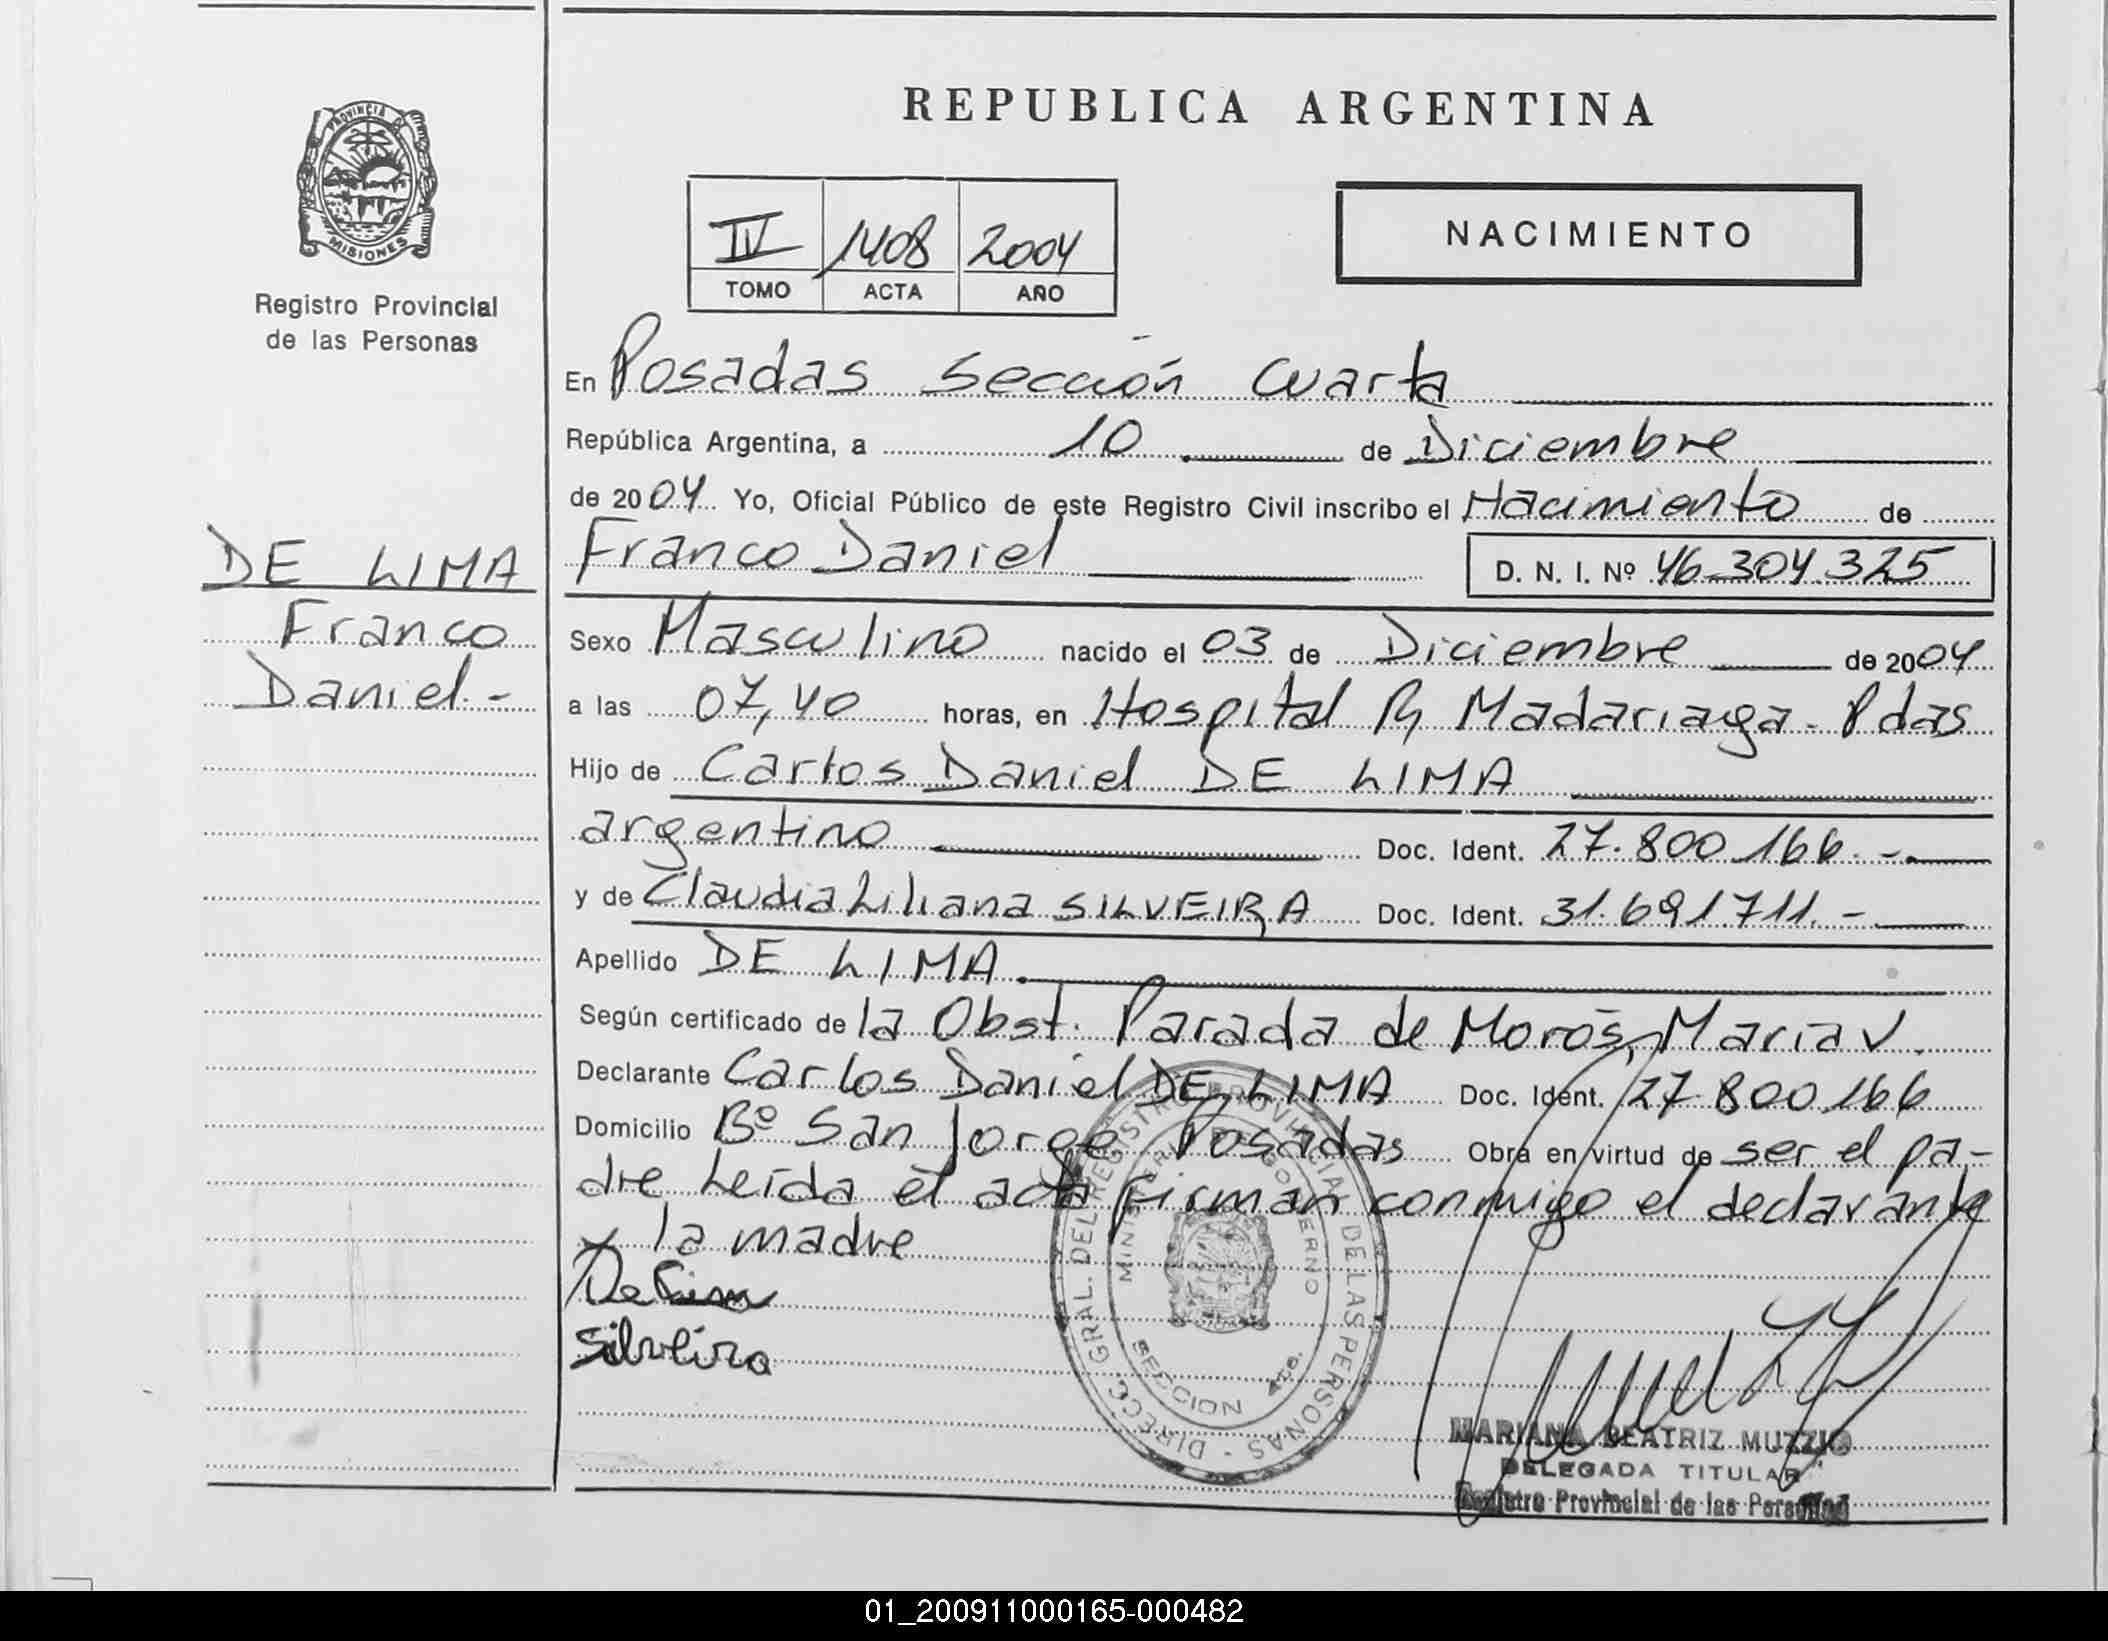 REPUBLICA ARGENTINA
PROVINCIA D
MISIONES
Registro Provincial
de las Personas
IV 1408 2004
TOMO ACTA AÑO
NACIMIENTO
En Posadas Sección Cuarta
República Argentina, a 10 de Diciembre
de 2004 Yo, Oficial Público de este Registro Civil inscribo el Nacimiento de
DE LIMA
Franco
Daniel.-
Franco Daniel D. N. I. Nº 46.304.325
Sexo Masculino nacido el 03 de Diciembre de 2004
a las 07,40 horas, en Hospital R, Madariaga - Pdas
Hijo de Carlos Daniel DE LIMA
argentino Doc. Ident. 27.800.166.-
y de Claudia Liliana SILVEIRA Doc. Ident. 31.691.711.-
Apellido DE LIMA.
Según certificado de la Obst. Parada de Morós, María V.
Declarante Carlos Daniel DE LIMA Doc. Ident. 27.800.166
Domicilio Bº San Jorge Posadas Obra en virtud de ser el pa-
dre Leída el acta firman conmigo el declarante
y la madre
De Lima
Silveira
DIRECC. GRAL. DEL REGISTRO PROVINCIAL DE LAS PERSONAS -
MINISTERIO DE GOBIERNO
SECCION 4ta.
MARIANA BEATRIZ MUZZIO
DELEGADA TITULAR
Registro Provincial de las Personas
01_200911000165-000482